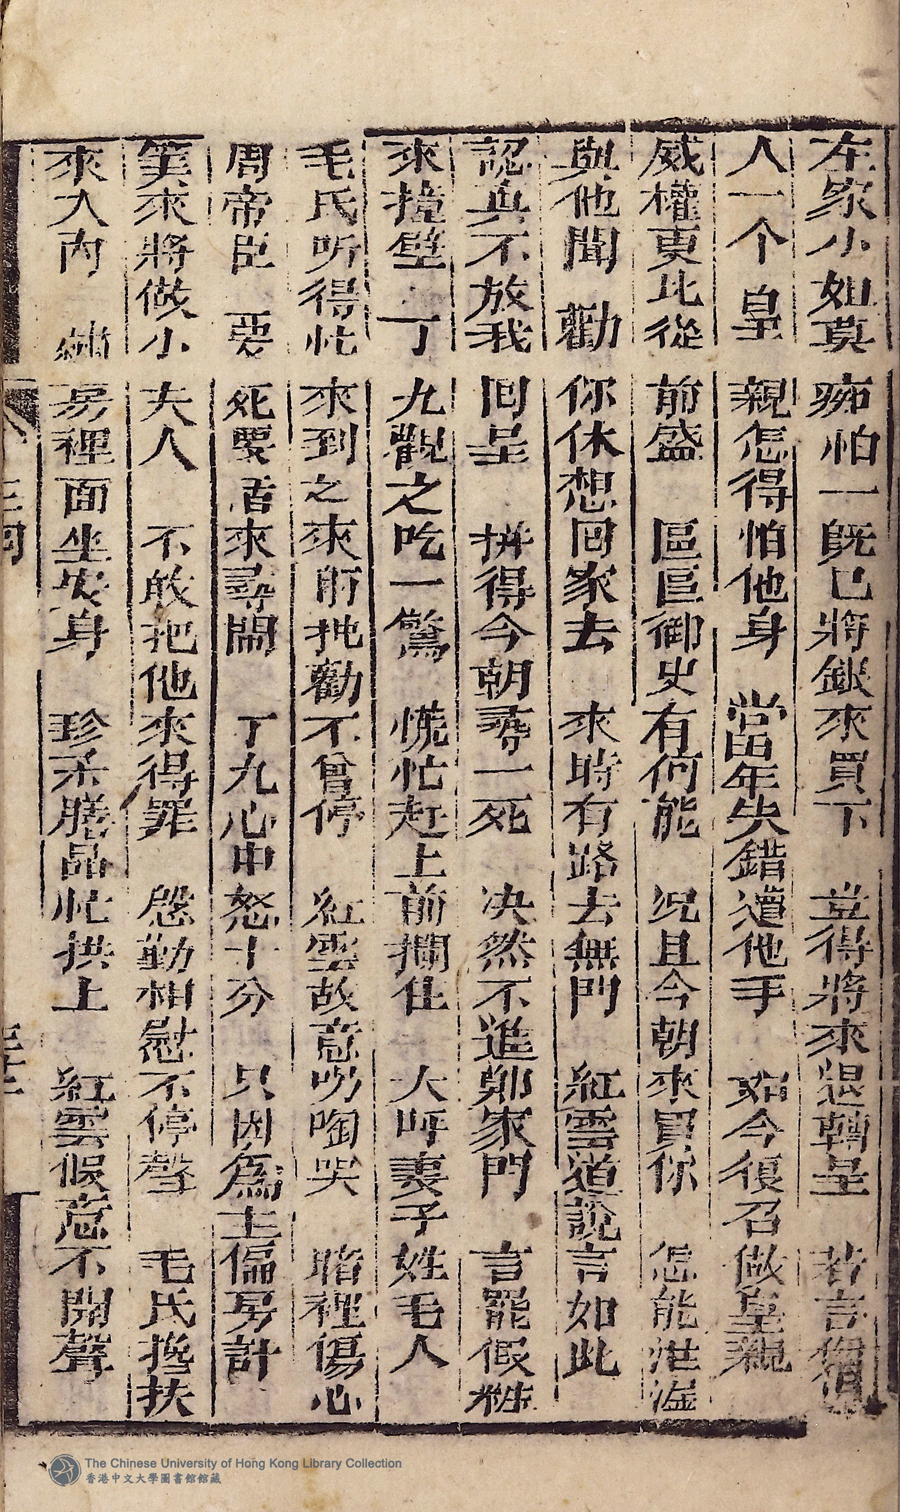 左家小姐莫痴怕一旣已將銀來買下豈得將來退轉呈若言
人一个皇親怎得怕他身當年失錯遭他手如今復召做皇親
威權更比從前盛區區御史有何能況且今朝來買你怎能泄漏
與他聞勸你休想回家去來時有路去無門紅雲道說言如此
認真不放我回呈拚得今朝尋一死决然不進鄭家門言罷假粧
來撞壁丁九觀之吃一驚慌忙赶上前攔住大呼妻子姓毛人
毛氏听得忙來到之來前扯勸不曾停紅雲故意呺啕哭暗裡傷心
周帝臣要死要活來尋鬧丁九心中怒十分只因爲主偏房計
筭來將做小夫人不敢把他來得罪慇勤相慰不停聲毛氏攙扶
來入內綉房裡面坐安身珍羞膳品忙拱上紅雲假意不開聲
三同
The Chinese University of Hong Kong Library Collection
香港中文大學圖書館館藏